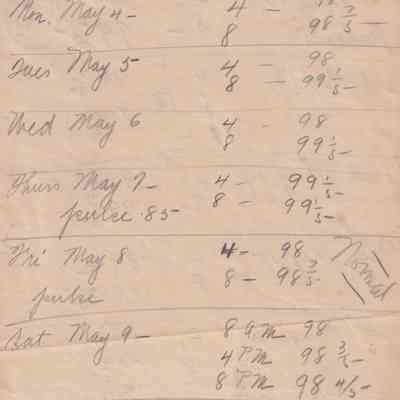 Mon. May 4 - 4 - 98
8 98 3/5 -
Tues May 5 4 - 98
8 - 99 1/5 -
Wed May 6 4 - 98
8 99 1/5 -
Thurs May 7 - 4 - 99 1/5 -
pulse 85 - 8 - 99 1/5 -
Fri May 8 4 - 98 Normal
8 - 98 3/5
pulse
Sat May 9 - 8 A.M 98
4 PM 98 3/5 -
8 PM 98 4/5 -